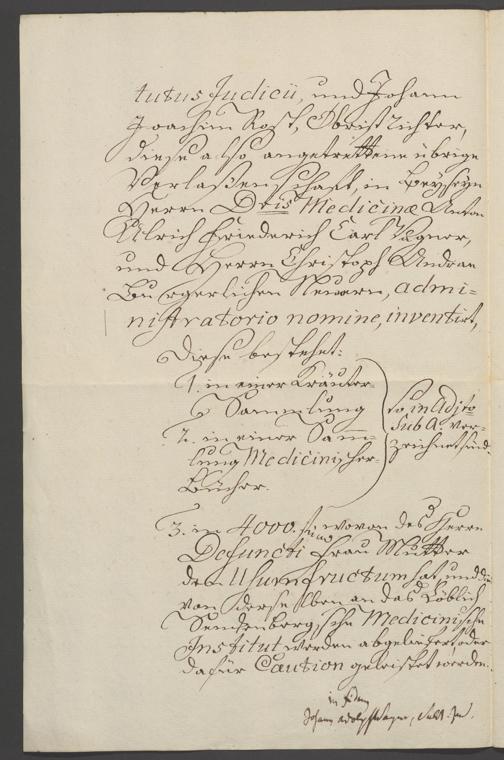 tutus Judicii, und Johann
Joachim Rost, Obristrichter,
diese also angetrettene übrige
Verlaßenschaft, in Beyseyn
Herrn Dris Medicinæ Anton
Ulrich Friederich Carl Wegner,
und Herrn Christoph Andreae
Burgerlichen Neuern, admi=
nistratorio nomine, inventirt,
Diese bestehet:
1. in einer Kräuter
Sammlung
2. in einer Samm=
lung Medicinischer
Bücher.
so in Adjto
sub A. ver=
zeichnet sind.
3. in 4000. fl. wovon des Herrn
Defuncti Frau Mutter
den Usumfructum hat, und die
von derselben an das Löblich
Senckenbergische Medicinische
Institut werden abgeliefert, oder
dafür Caution geleistet werden.
in fidem
Johann Adolph